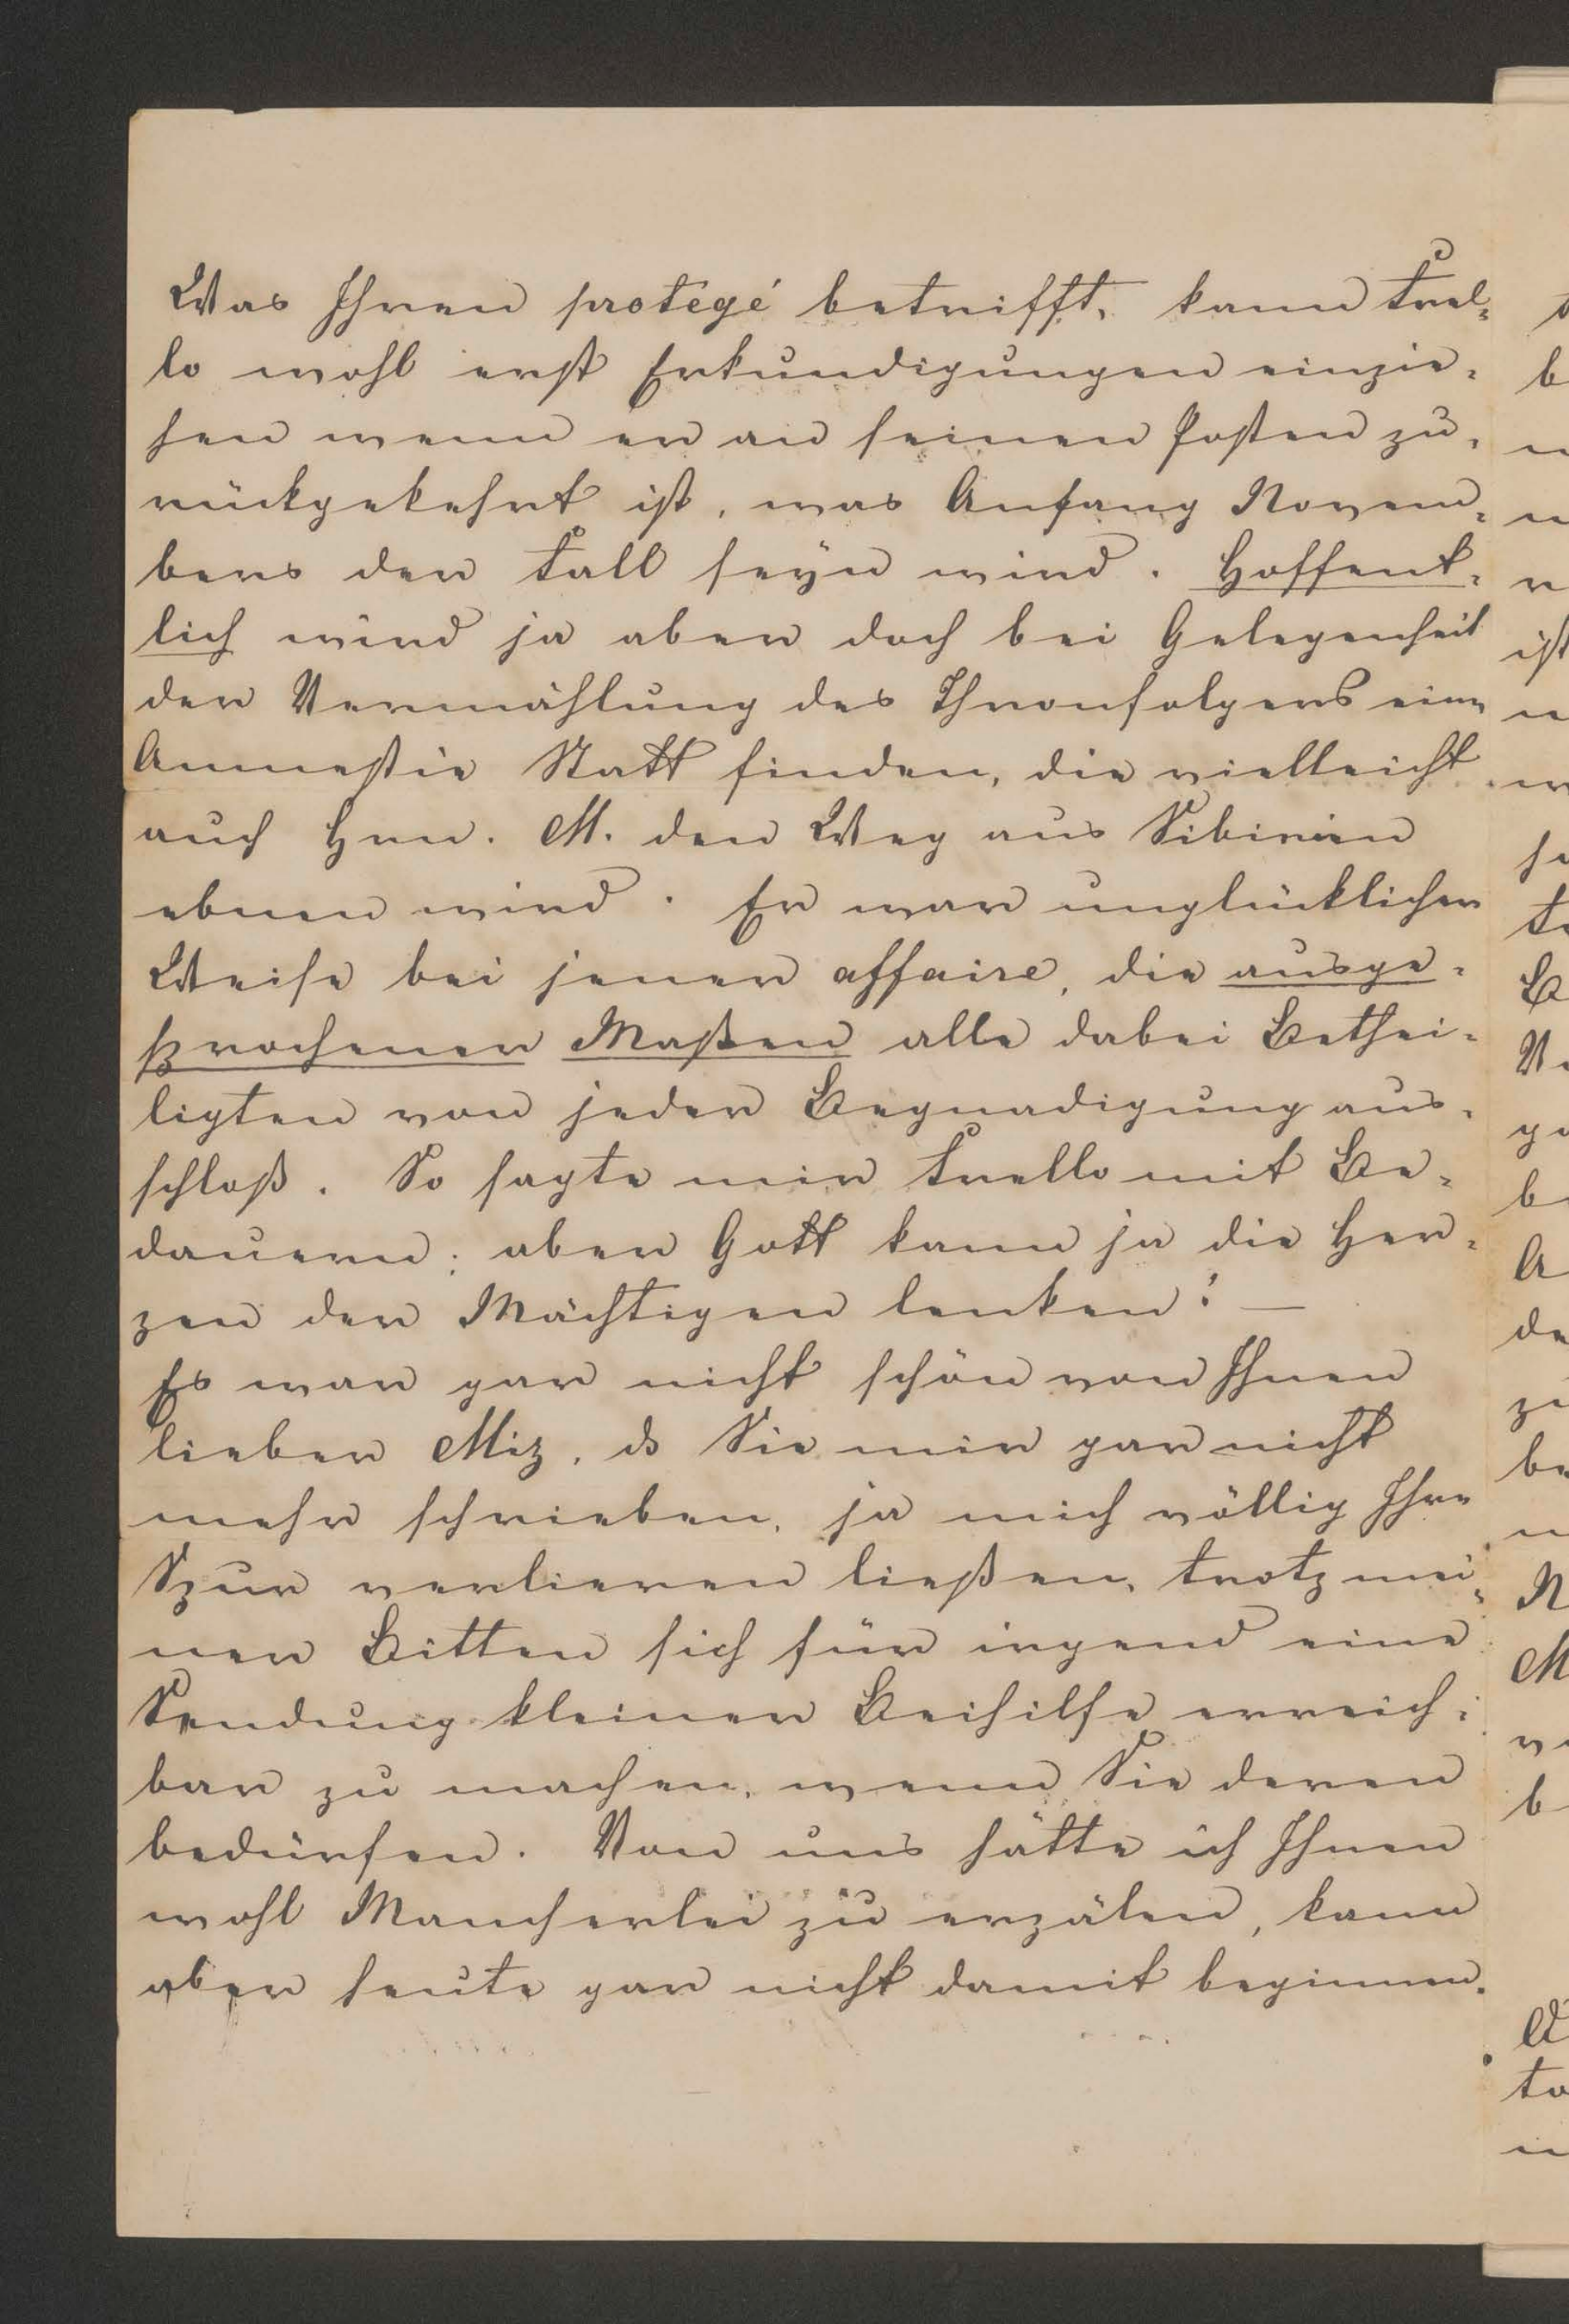 Was Ihren protégé betrifft, kann Frel-
lo wohl erst Erkundigungen einzie-
hen wenn er an seinen Posten zu-
rückgekehrt ist, was Anfang Novem-
bers der Fall seyn wird. Hoffent-
lich wird ja aber doch bei Gelegenheit
der Vermählung des Thronfolgers eine
Amnestie Statt finden, die vielleicht
auch Hrn. M. den Weg aus Sibirien
ebnen wird. Er war unglücklicher
Weise bei jener affaire, die ausge-
sprochener Maßen alle dabei Bethei-
ligten von jeder Begnadigung aus-
schloß. So sagte mir Frello mit Be-
dauern; aber Gott kann ja die Her-
zen der Mächtigen lenken! —
Es war gar nicht schön von Ihnen
lieber Miz, ds Sie mir gar nicht
mehr schrieben, ja mich völlig Ihre
Spur verlieren ließen, trotz mei-
ner Bitten sich für irgend eine
Sendung kleiner Beihilfe erreich-
bar zu machen, wenn Sie deren
bedürfen. Von uns hätte ich Ihnen
wohl Mancherlei zu erzälen, kann
aber heute gar nicht damit beginnen.